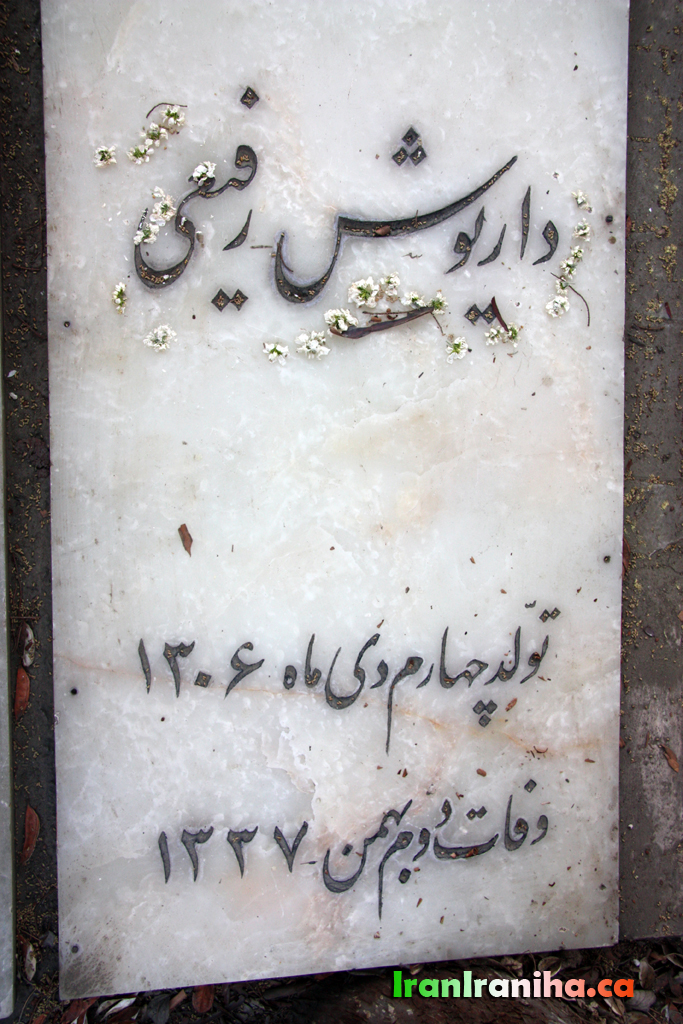 داریوش رفیعی
تولّد چهارم دی ماه ۱۳۰۶
وفات دوم بهمن ۱۳۳۷
IranIraniha.ca